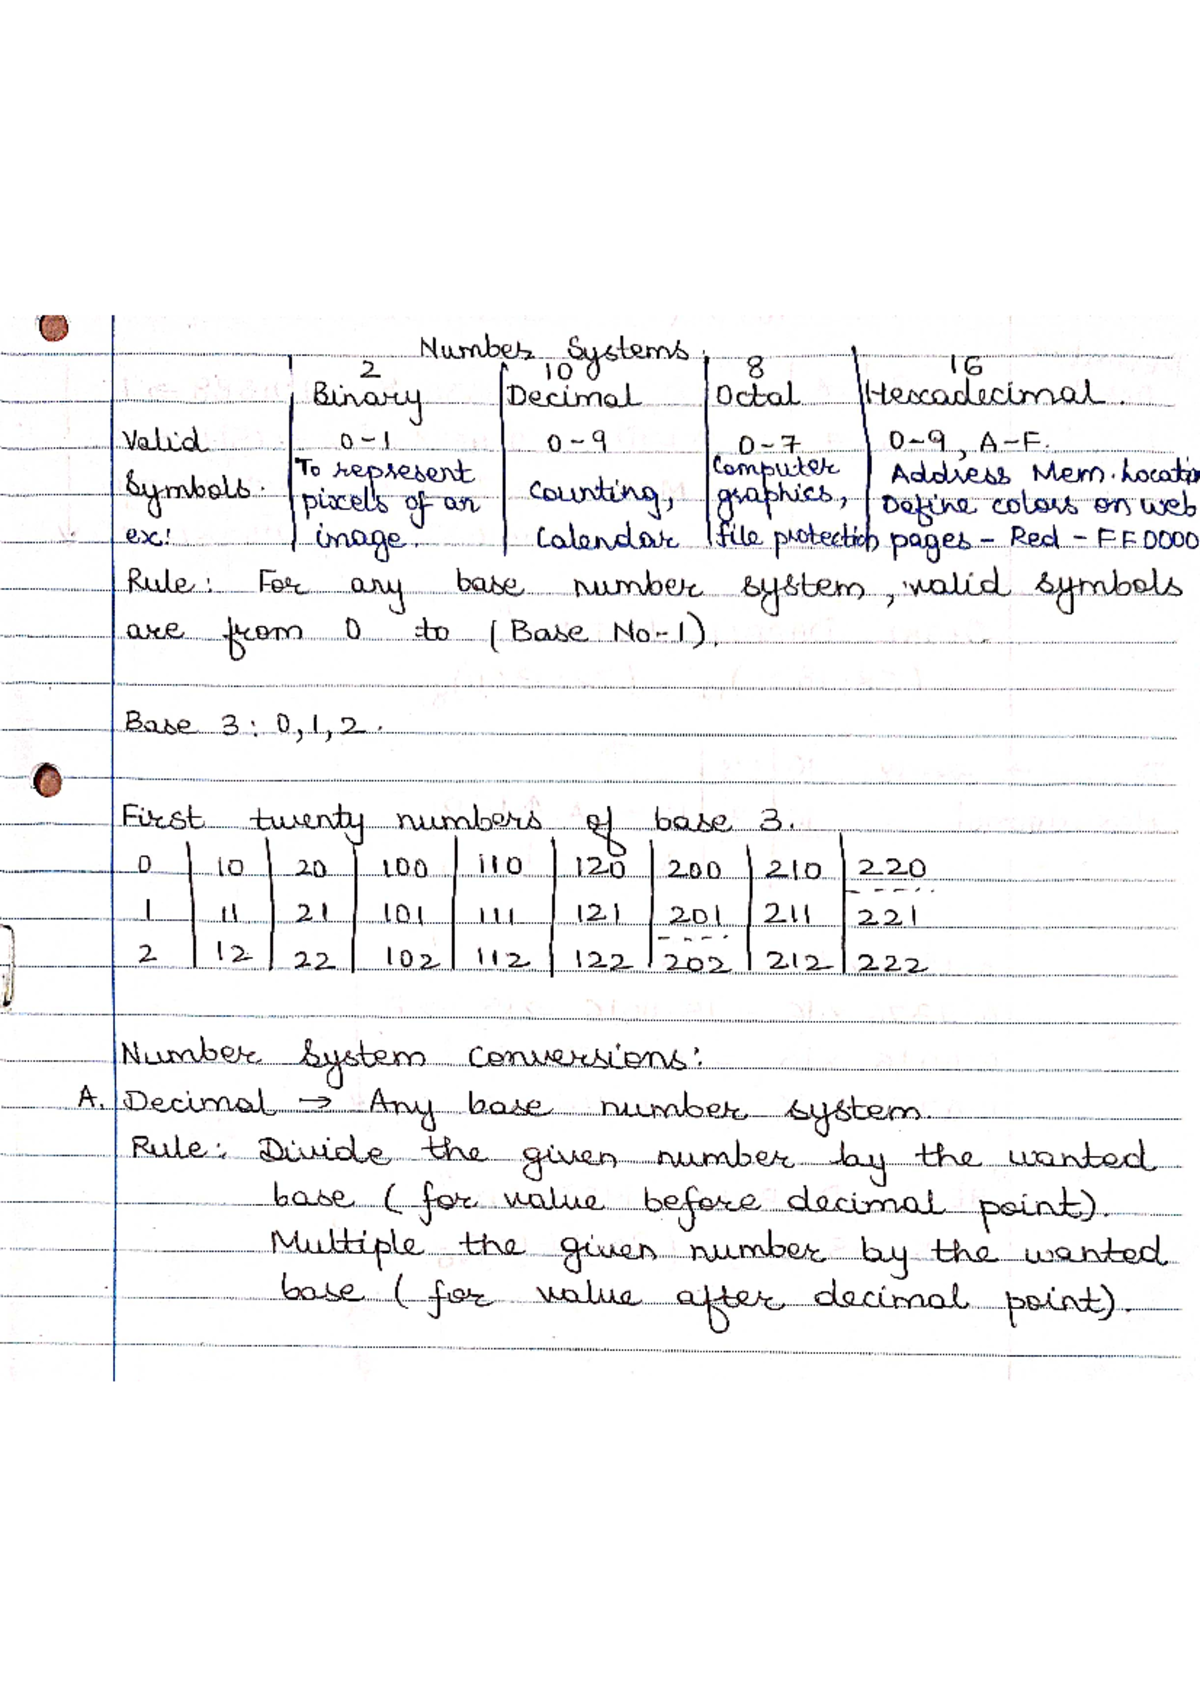 Number Systems.
2 10 8 16
Binary Decimal Octal Hexadecimal.
Valid 0-1 0-9 0-7 0-9, A-F.
Symbols. To represent Computer Address Mem. Locatio
pixels of an Counting, graphics, Define colors on web
ex: image. Calendar file protection pages - Red - FF0000
Rule: For any base number system, valid symbols
are from 0 to (Base No-1).
Base 3: 0,1,2.
First twenty numbers of base 3.
0 10 20 100 110 120 200 210 220
1 11 21 101 111 121 201 211 221
2 12 22 102 112 122 202 212 222
Number System Conversions:
A. Decimal → Any base number system.
Rule: Divide the given number by the wanted
base (for value before decimal point).
Multiple the given number by the wanted
base (for value after decimal point).